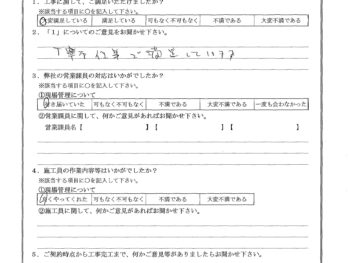 1．工事に関して、ご満足いただけましたか？
※該当する項目に○を記入して下さい。
大変満足している　満足している　可もなく不可もなく　不満である　大変不満である
2．「1」についてのご意見をお聞かせ下さい。
丁寧な仕事で満足しています
3．弊社の営業課員の対応はいかがでしたか？
※該当する項目に○を記入して下さい。
①現場管理について
き届いていた　可もなく不可もなく　不満である　大変不満である　一度も会わなかった
②営業課員に関して、何かご意見があればお聞かせ下さい。
営業課員名【　　　】【　　　】【　　　】
4．施工員の作業内容等はいかがでしたか？
※該当する項目に○を記入して下さい。
①現場管理について
くやってくれた　可もなく不可もなく　不満である　大変不満である
②施工員に関して、何かご意見があればお聞かせ下さい。
5．ご契約時点から工事完工まで、何かご意見等がありましたらお聞かせ下さい。